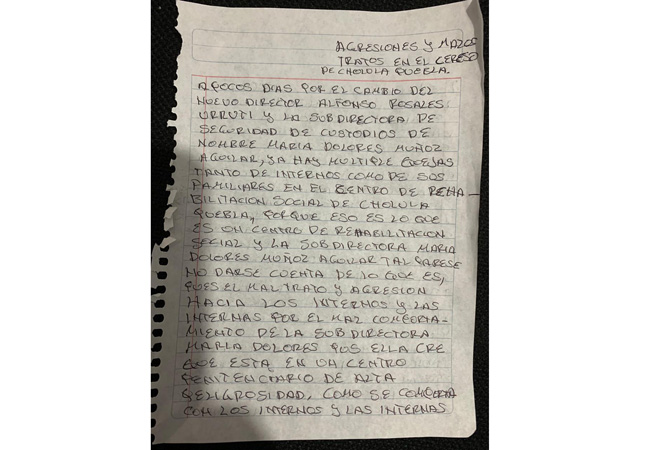 AGRESIONES Y MALOS
TRATOS EN EL CERESO
DE CHOLULA PUEBLA.
A POCOS DIAS POR EL CAMBIO DEL
NUEVO DIRECTOR ALFONSO ROSALES
URRUTI Y LA SUBDIRECTORA DE
SEGURIDAD DE CUSTODIOS DE
NOMBRE MARIA DOLORES MUÑOZ
AGUILAR, YA HAY MULTIPLE QUEJAS
TANTO DE INTERNOS COMO DE SUS
FAMILIARES EN EL CENTRO DE REHA-
BILITACION SOCIAL DE CHOLULA
PUEBLA, PORQUE ESO ES LO QUE
ES UN CENTRO DE REHABILITACION
SOCIAL Y LA SUBDIRECTORA MARIA
DOLORES MUÑOZ AGUILAR TAL PARESE
NO DARSE CUENTA DE LO QUE ES,
PUES EL MAL TRATO Y AGRESION
HACIA LOS INTERNOS Y LAS
INTERNAS POR EL MAL COMPORTA-
MIENTO DE LA SUBDIRECTORA
MARIA DOLORES PUS ELLA CRE
QUE ESTA EN UN CENTRO
PENITENCIARIO DE ALTA
PELIGROSIDAD, COMO SE COMPORTA
CON LOS INTERNOS Y LAS INTERNAS